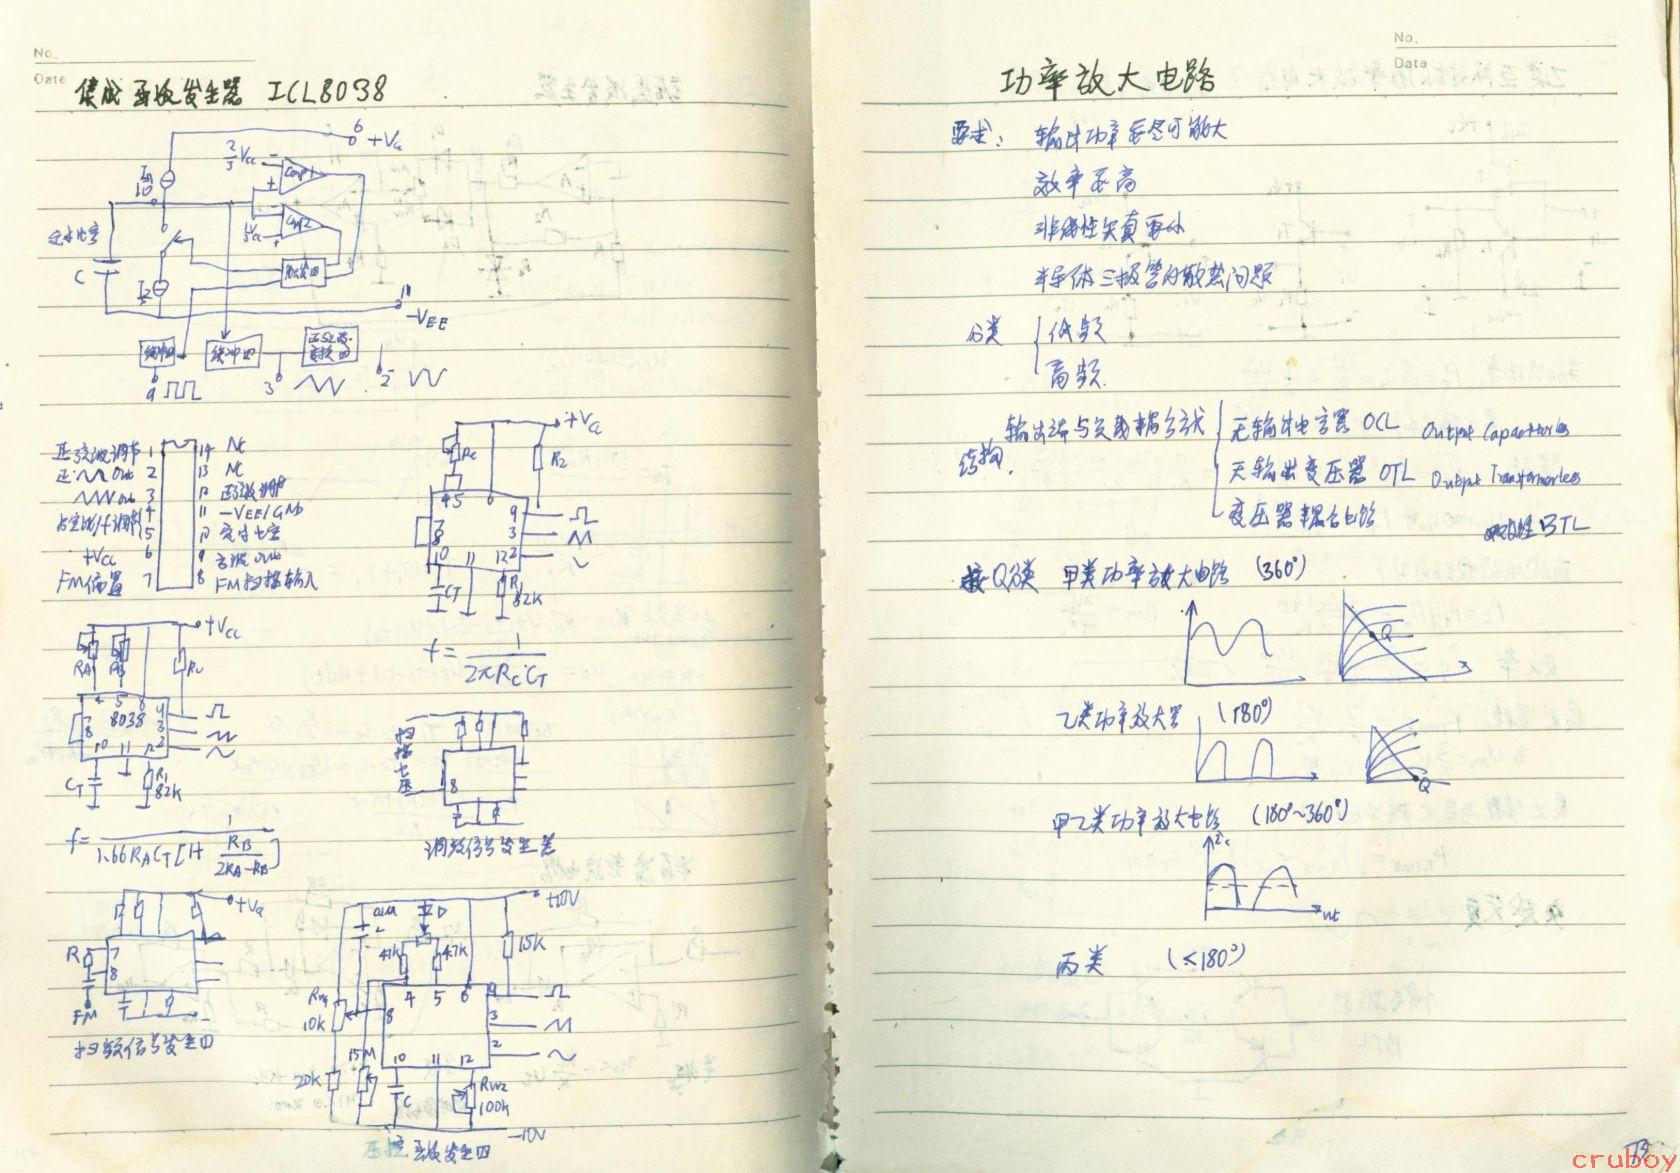 No.
Date
集成函数发生器 ICL8038
6
+Vcc
2/3 Vcc
-
+
Comp1
10
外接电容
C
Comp2
触发器
11
-VEE
缓冲器
缓冲器
正弦波变换器
9
3
2
正弦波调节 1
正弦 out 2
out 3
占空比/f调节 4
5
+Vcc 6
FM偏置 7
14 NC
13 NC
12 正弦波调节
11 -VEE/GND
10 定时电容
9 方波out
8 FM扫描输入
+Vcc
Rc
R2
4 5 6
7
8
9
3
2
10 11 12
CT
R1
82K
f= 1/(2πRcCT)
+Vcc
RA
RB
RL
4 5 6
7
8
8038
9
3
2
10 11 12
CT
R1
82K
f= 1/(1.66RACT[1+ RB/(2RA-RB)])
扫描电压
8
调频信号发生器
+Vcc
R
7
8
FM
扫频信号发生器
+10V
0.1u
D
47K
47K
15K
Rw1
10K
4 5 6
8
9
3
2
10 11 12
15M
20K
C
Rw2
100K
-10V
压控函数发生器
No.
Date
功率放大电路
要求: 输出功率要尽可能大
效率要高
非线性失真要小
半导体三极管的散热问题
分类
低频
高频
结构.
输出端与负载耦合方式
无输出电容器 OCL Output Capacitorless
无输出变压器 OTL Output Transformerless
变压器耦合电路
BTL
按Q分类 甲类功率放大电路 (360°)
Q
乙类功率放大器 (180°)
Q
甲乙类功率放大电路 (180°~360°)
ic
wt
丙类 (≤180°)
cruboy